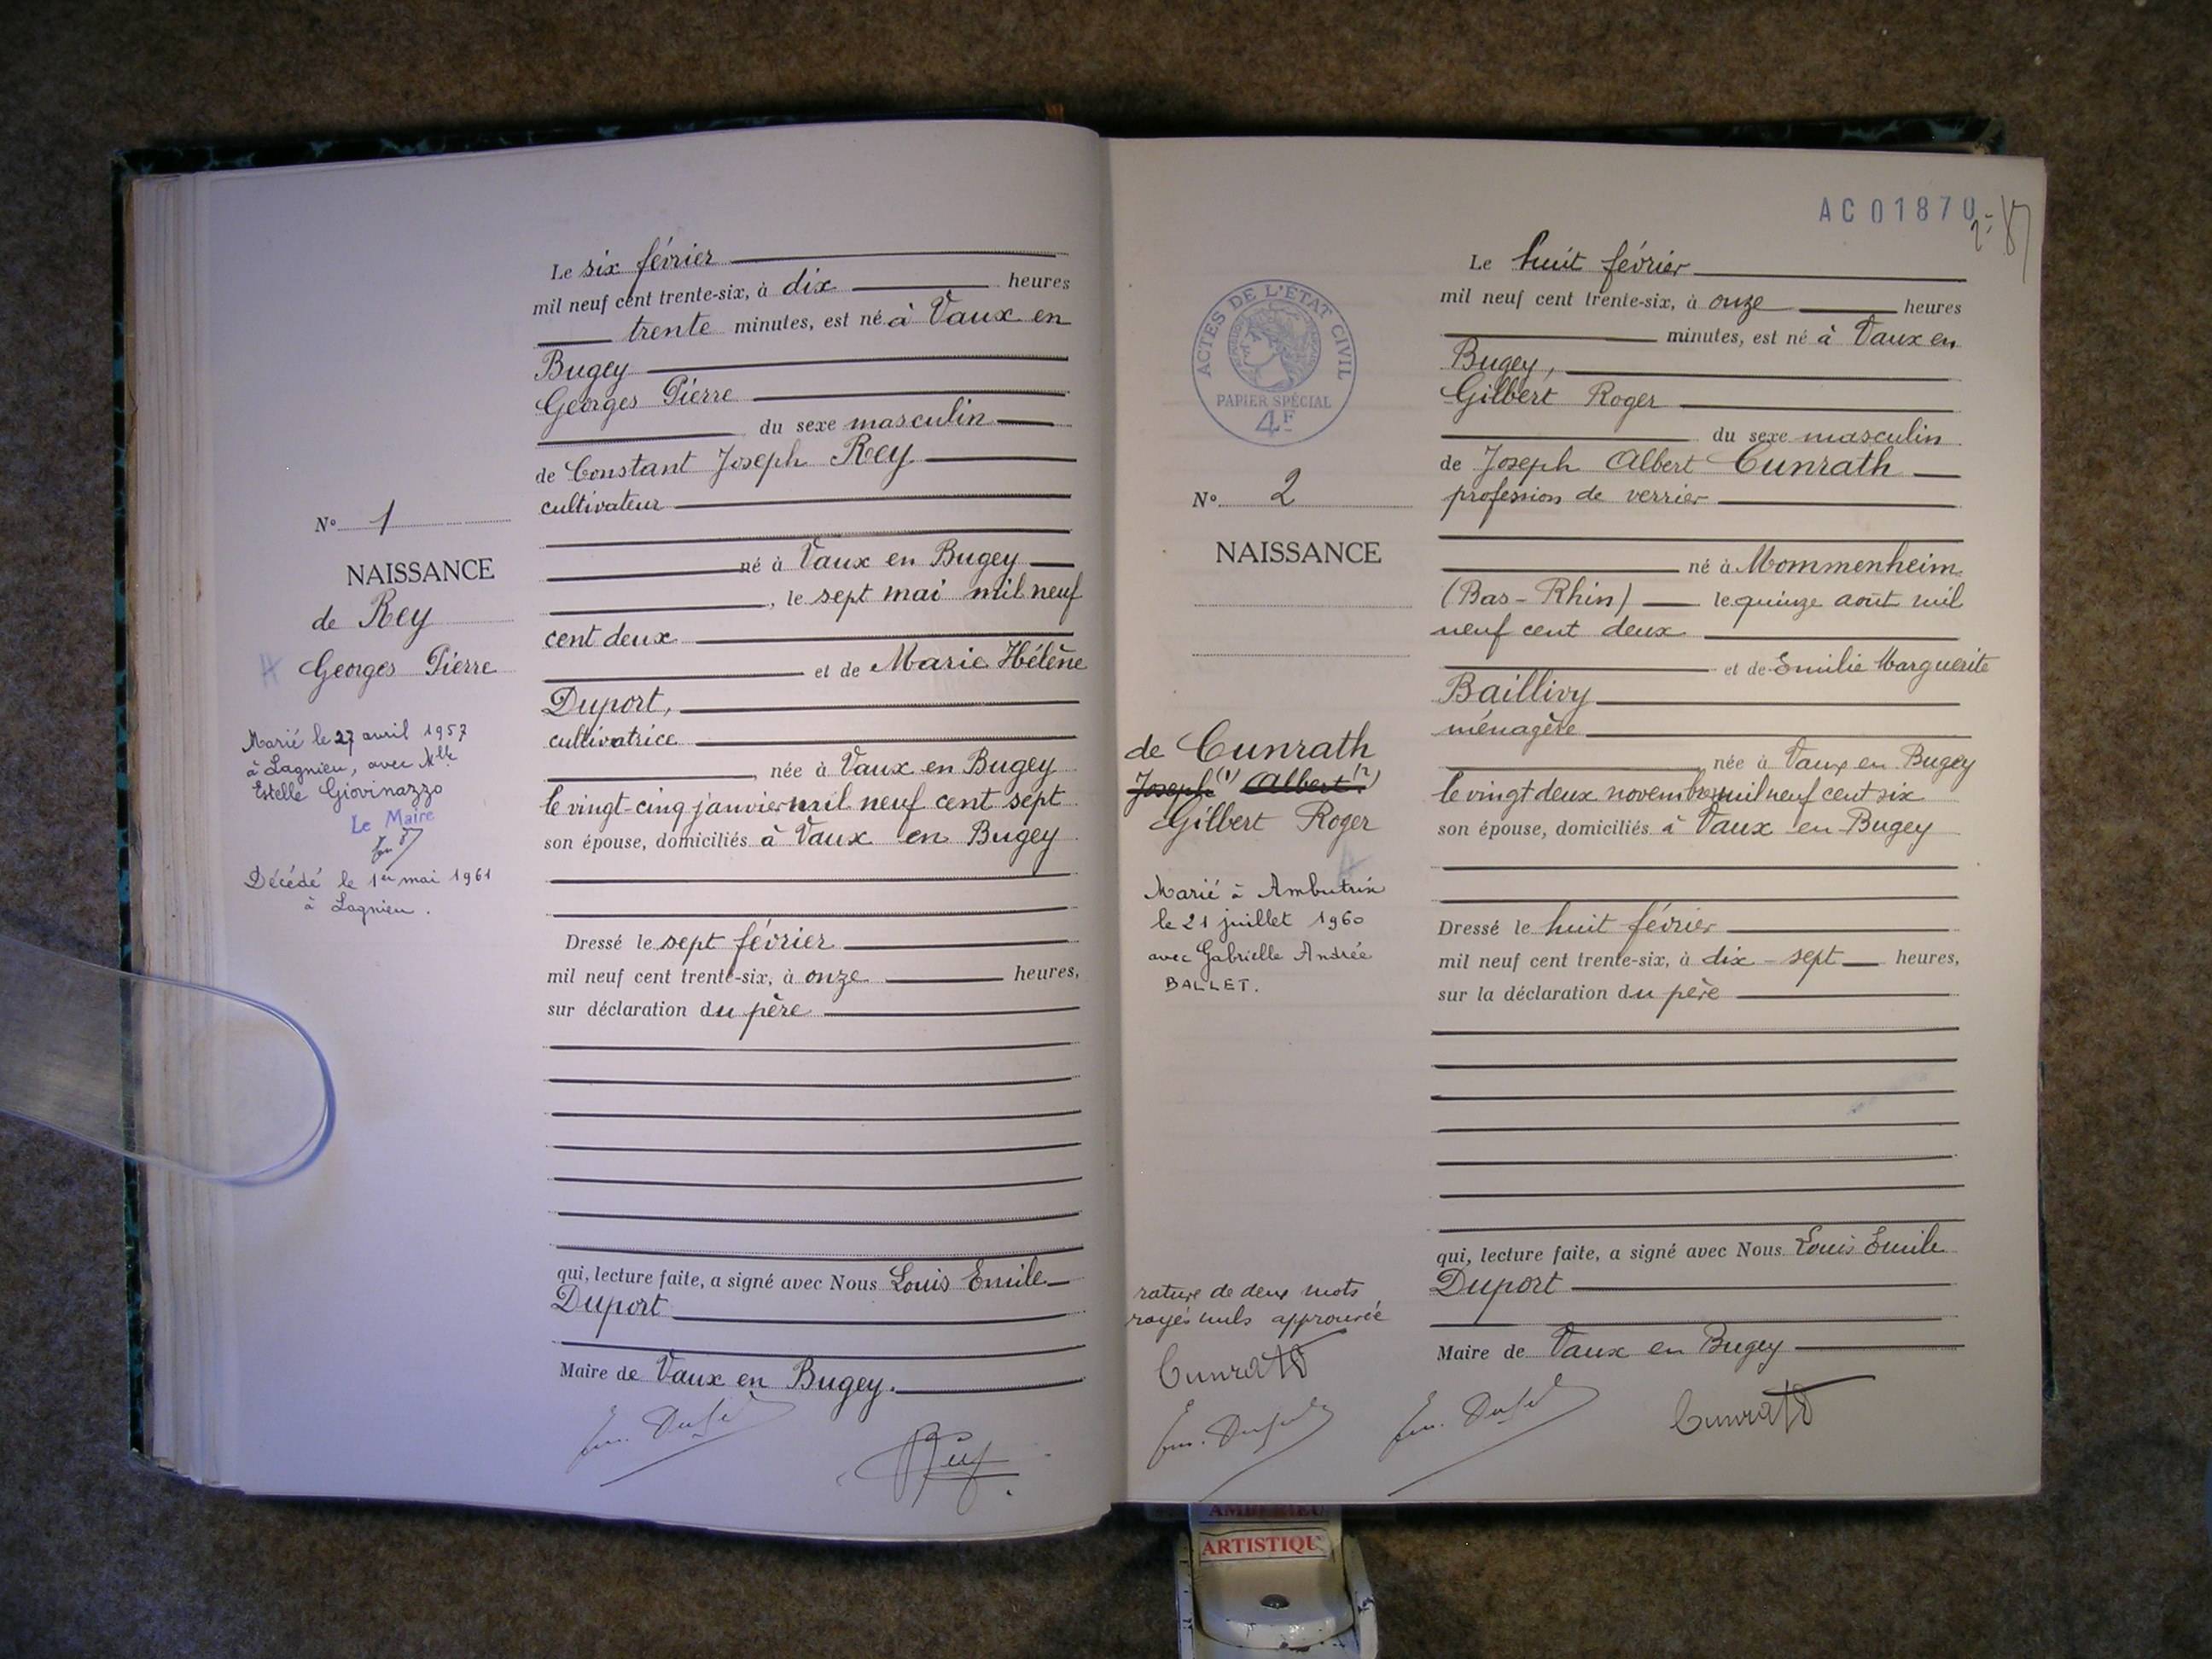 Le six février
mil neuf cent trente-six, à dix heures
trente minutes, est né à Vaux en
Bugey
Georges Pierre
du sexe masculin
de Constant Joseph Rey
cultivateur
né à Vaux en Bugey
, le sept mai mil neuf
cent deux
et de Marie Hélène
Duport,
cultivatrice
née à Vaux en Bugey
le vingt-cinq janvier mil neuf cent sept
son épouse, domiciliés à Vaux en Bugey
Dressé le sept février
mil neuf cent trente-six, à onze heures,
sur déclaration du père
qui, lecture faite, a signé avec Nous Louis Emile
Duport
Maire de Vaux en Bugey.
N° 1
NAISSANCE
de Rey
Georges Pierre
Marié le 27 avril 1957
à Lagnieu, avec Mlle
Estelle Giovinazzo
Le Maire
Décédé le 1er mai 1961
à Lagnieu.
AC 01870
ACTES DE L'ÉTAT CIVIL
PAPIER SPÉCIAL
4F
N° 2
NAISSANCE
de Cunrath
Joseph (1) Albert (2)
Gilbert Roger
Marié à Ambutrix
le 21 juillet 1960
avec Gabrielle Andrée
BALLET.
rature de deux mots
rayés nuls approuvée
Cunrath
Le huit février
mil neuf cent trente-six, à onze heures
minutes, est né à Vaux en
Bugey,
Gilbert Roger
du sexe masculin
de Joseph Albert Cunrath
profession de verrier
né à Mommenheim
(Bas-Rhin) le quinze août mil
neuf cent deux
et de Emilie Marguerite
Baillivy
ménagère
née à Vaux en Bugey
le vingt deux novembre mil neuf cent six
son épouse, domiciliés à Vaux en Bugey
Dressé le huit février
mil neuf cent trente-six, à dix-sept heures,
sur la déclaration du père
qui, lecture faite, a signé avec Nous Louis Emile
Duport
Maire de Vaux en Bugey
Cunrath
AMBERIEU
ARTISTIQU